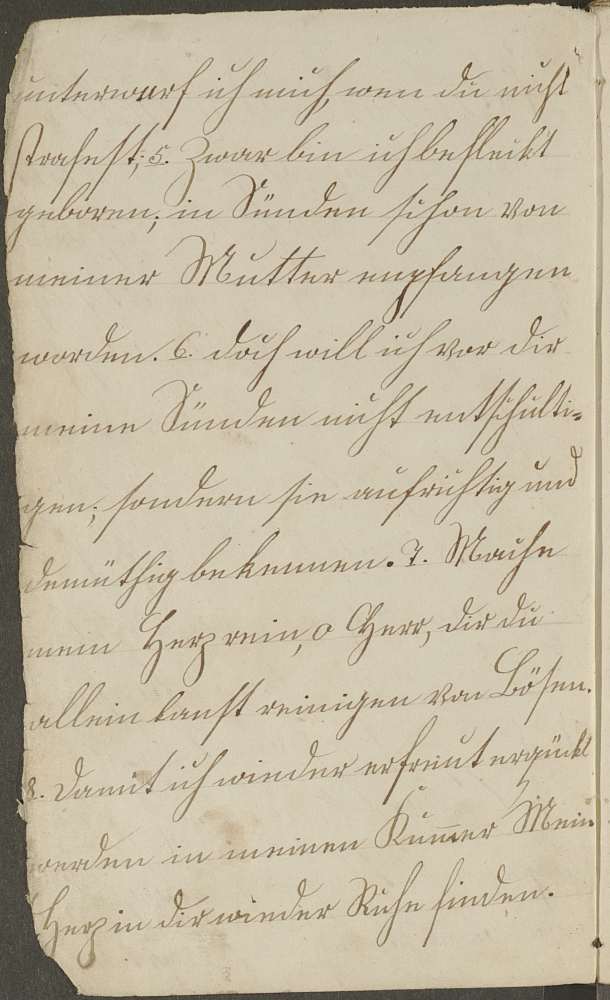 unterwarf ich mich, wen du nicht
strafest; 5. Zwar bin ich befleckt
geboren; in Sünden schon von
meiner Mutter empfangen
worden. 6. doch will ich vor dir
meine Sünden nicht entschulti-
gen; sondern sie aufrichtig und
demüthig bekennen. 7. Mache
mein Herz rein, o Herr, dir du
allein kanst reinigen von Bösen.
8. Damit ich wieder erfreut erqückt
werden in meinen Kum̅er Mein
Herz in dir wieder Ruhe finden.